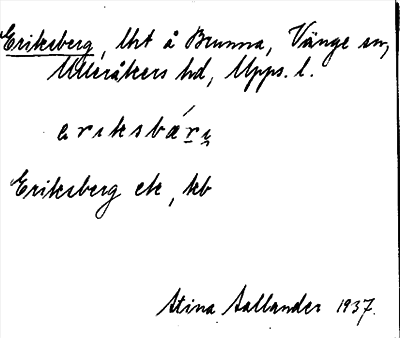 Eriksberg, lht å Brunna, Vänge sn,
Ulleråkers hd, Upps. l.
eriksbærj
Eriksberg ek, kb
Stina Aallander 1937.